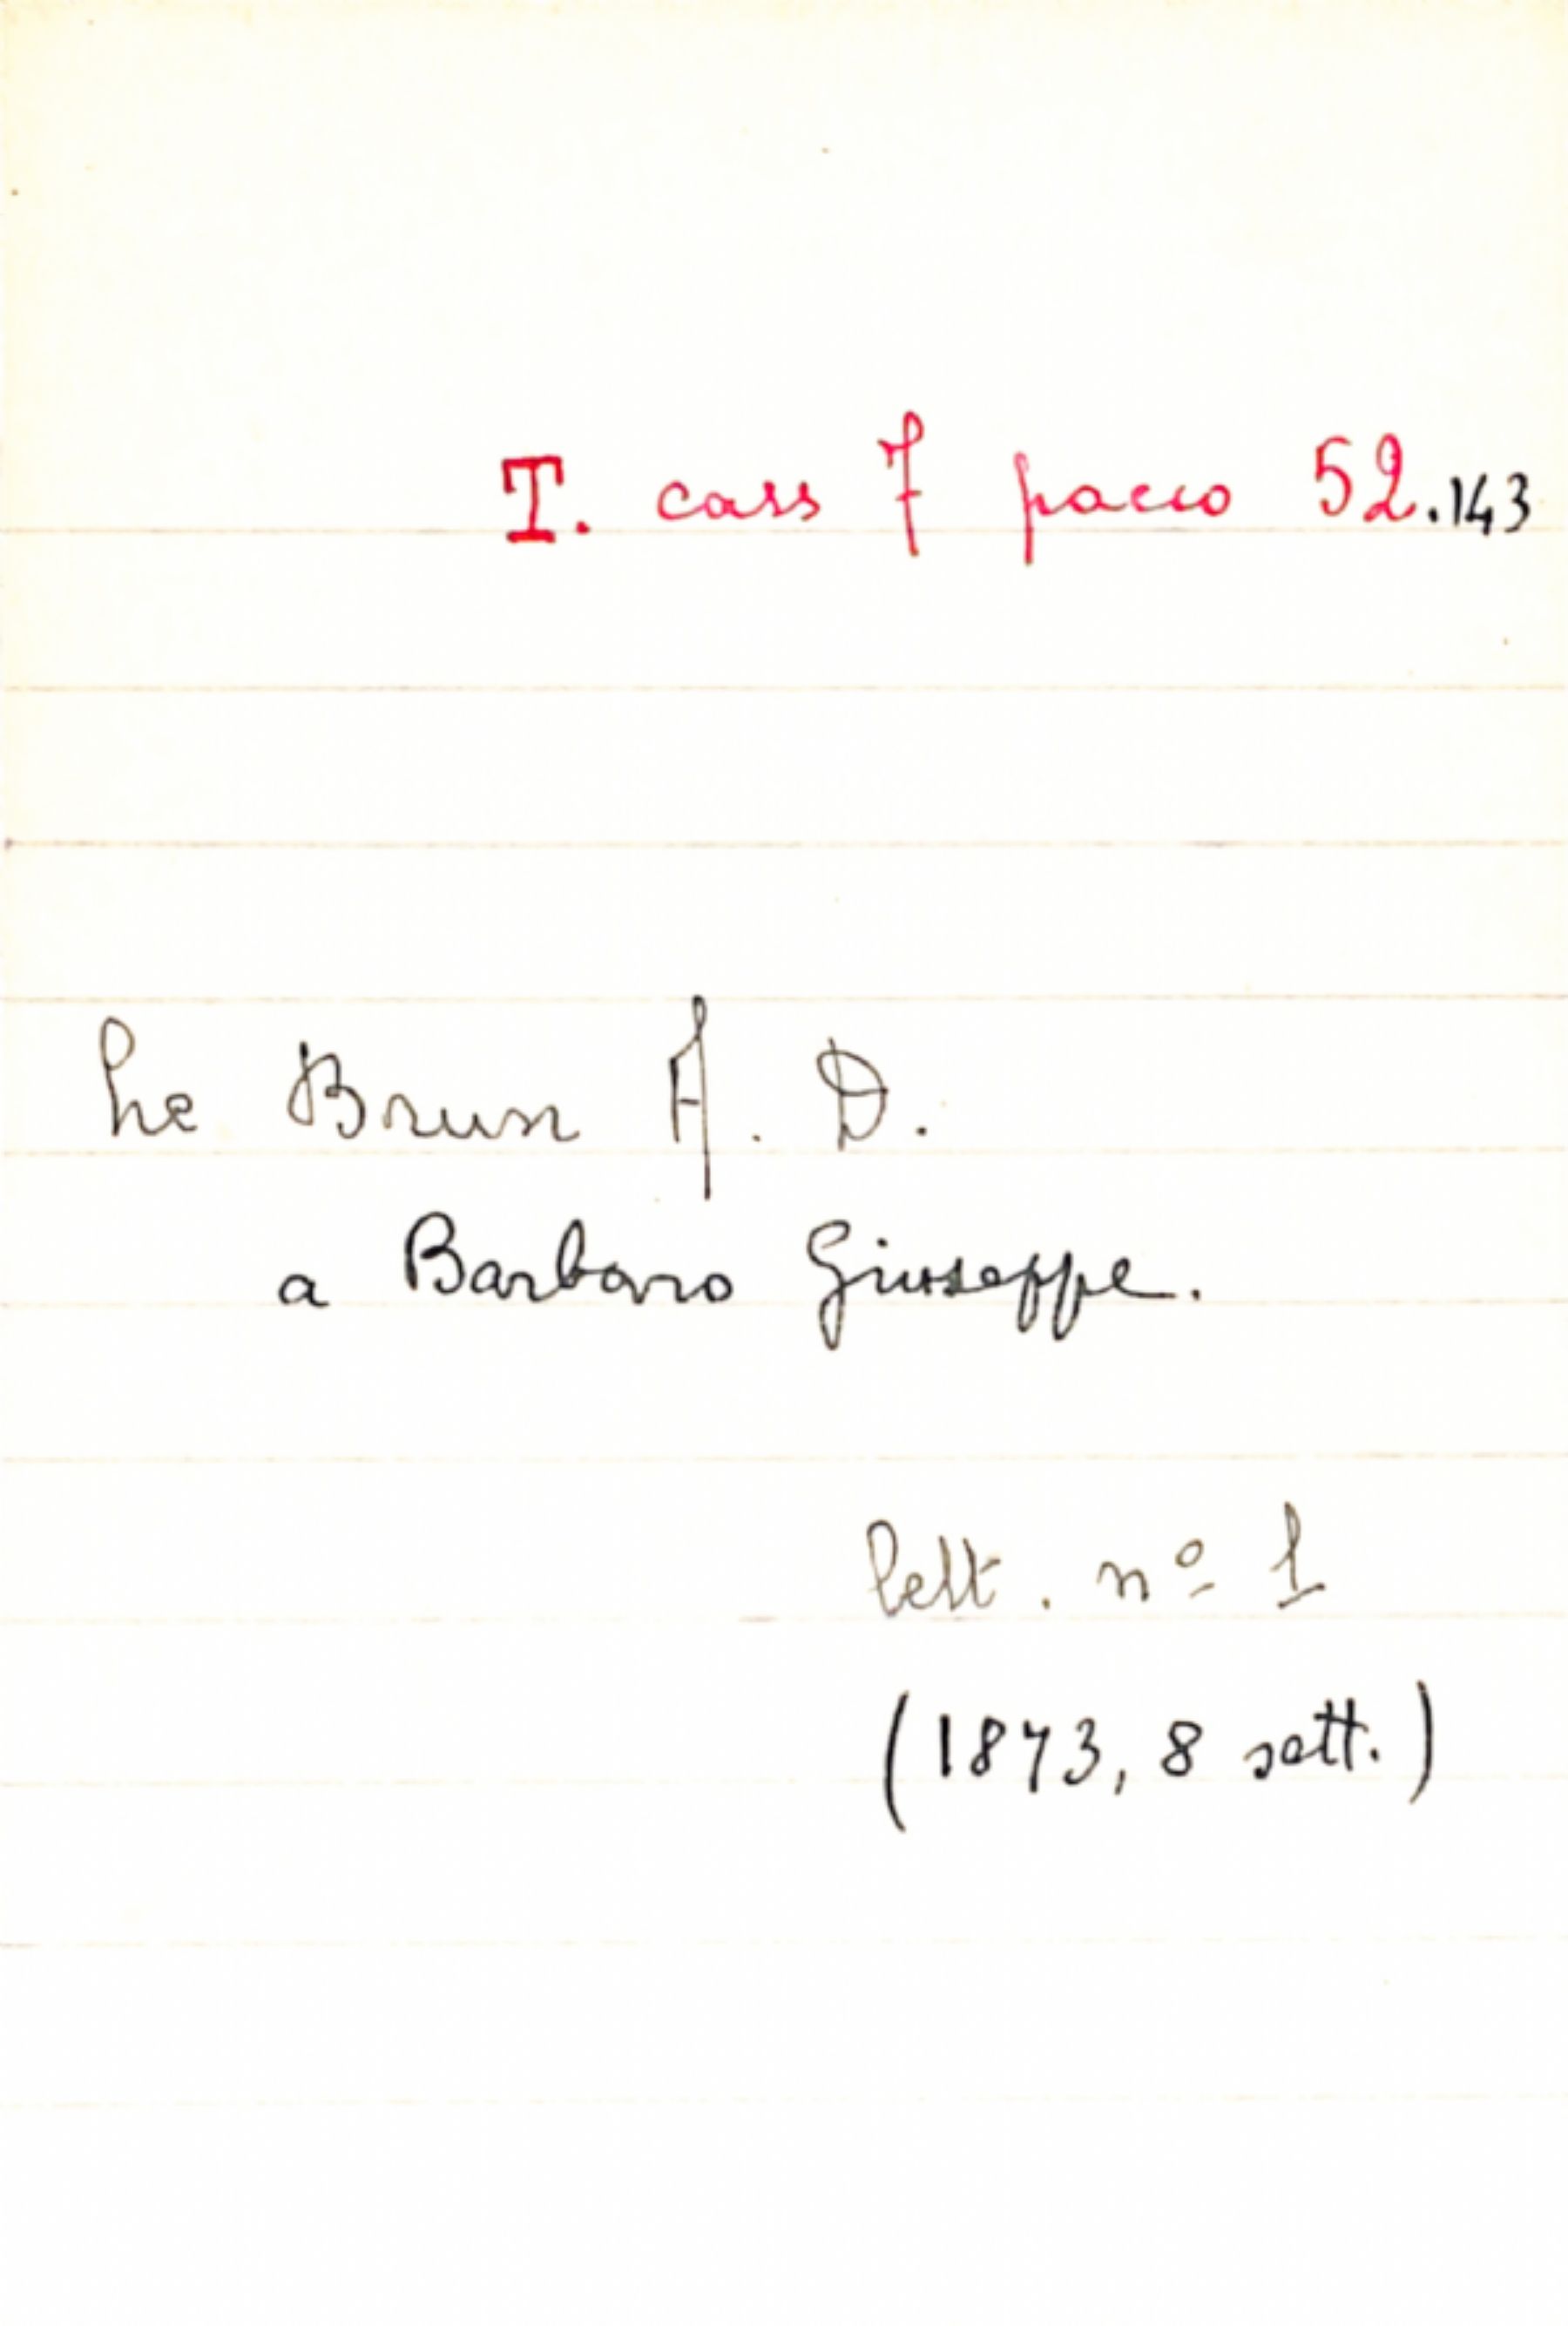 T. cass 7 pacco 52.143
Le Brun A. D.
a Barbaro Giuseppe.
lett. nº 1
(1873, 8 sett.)